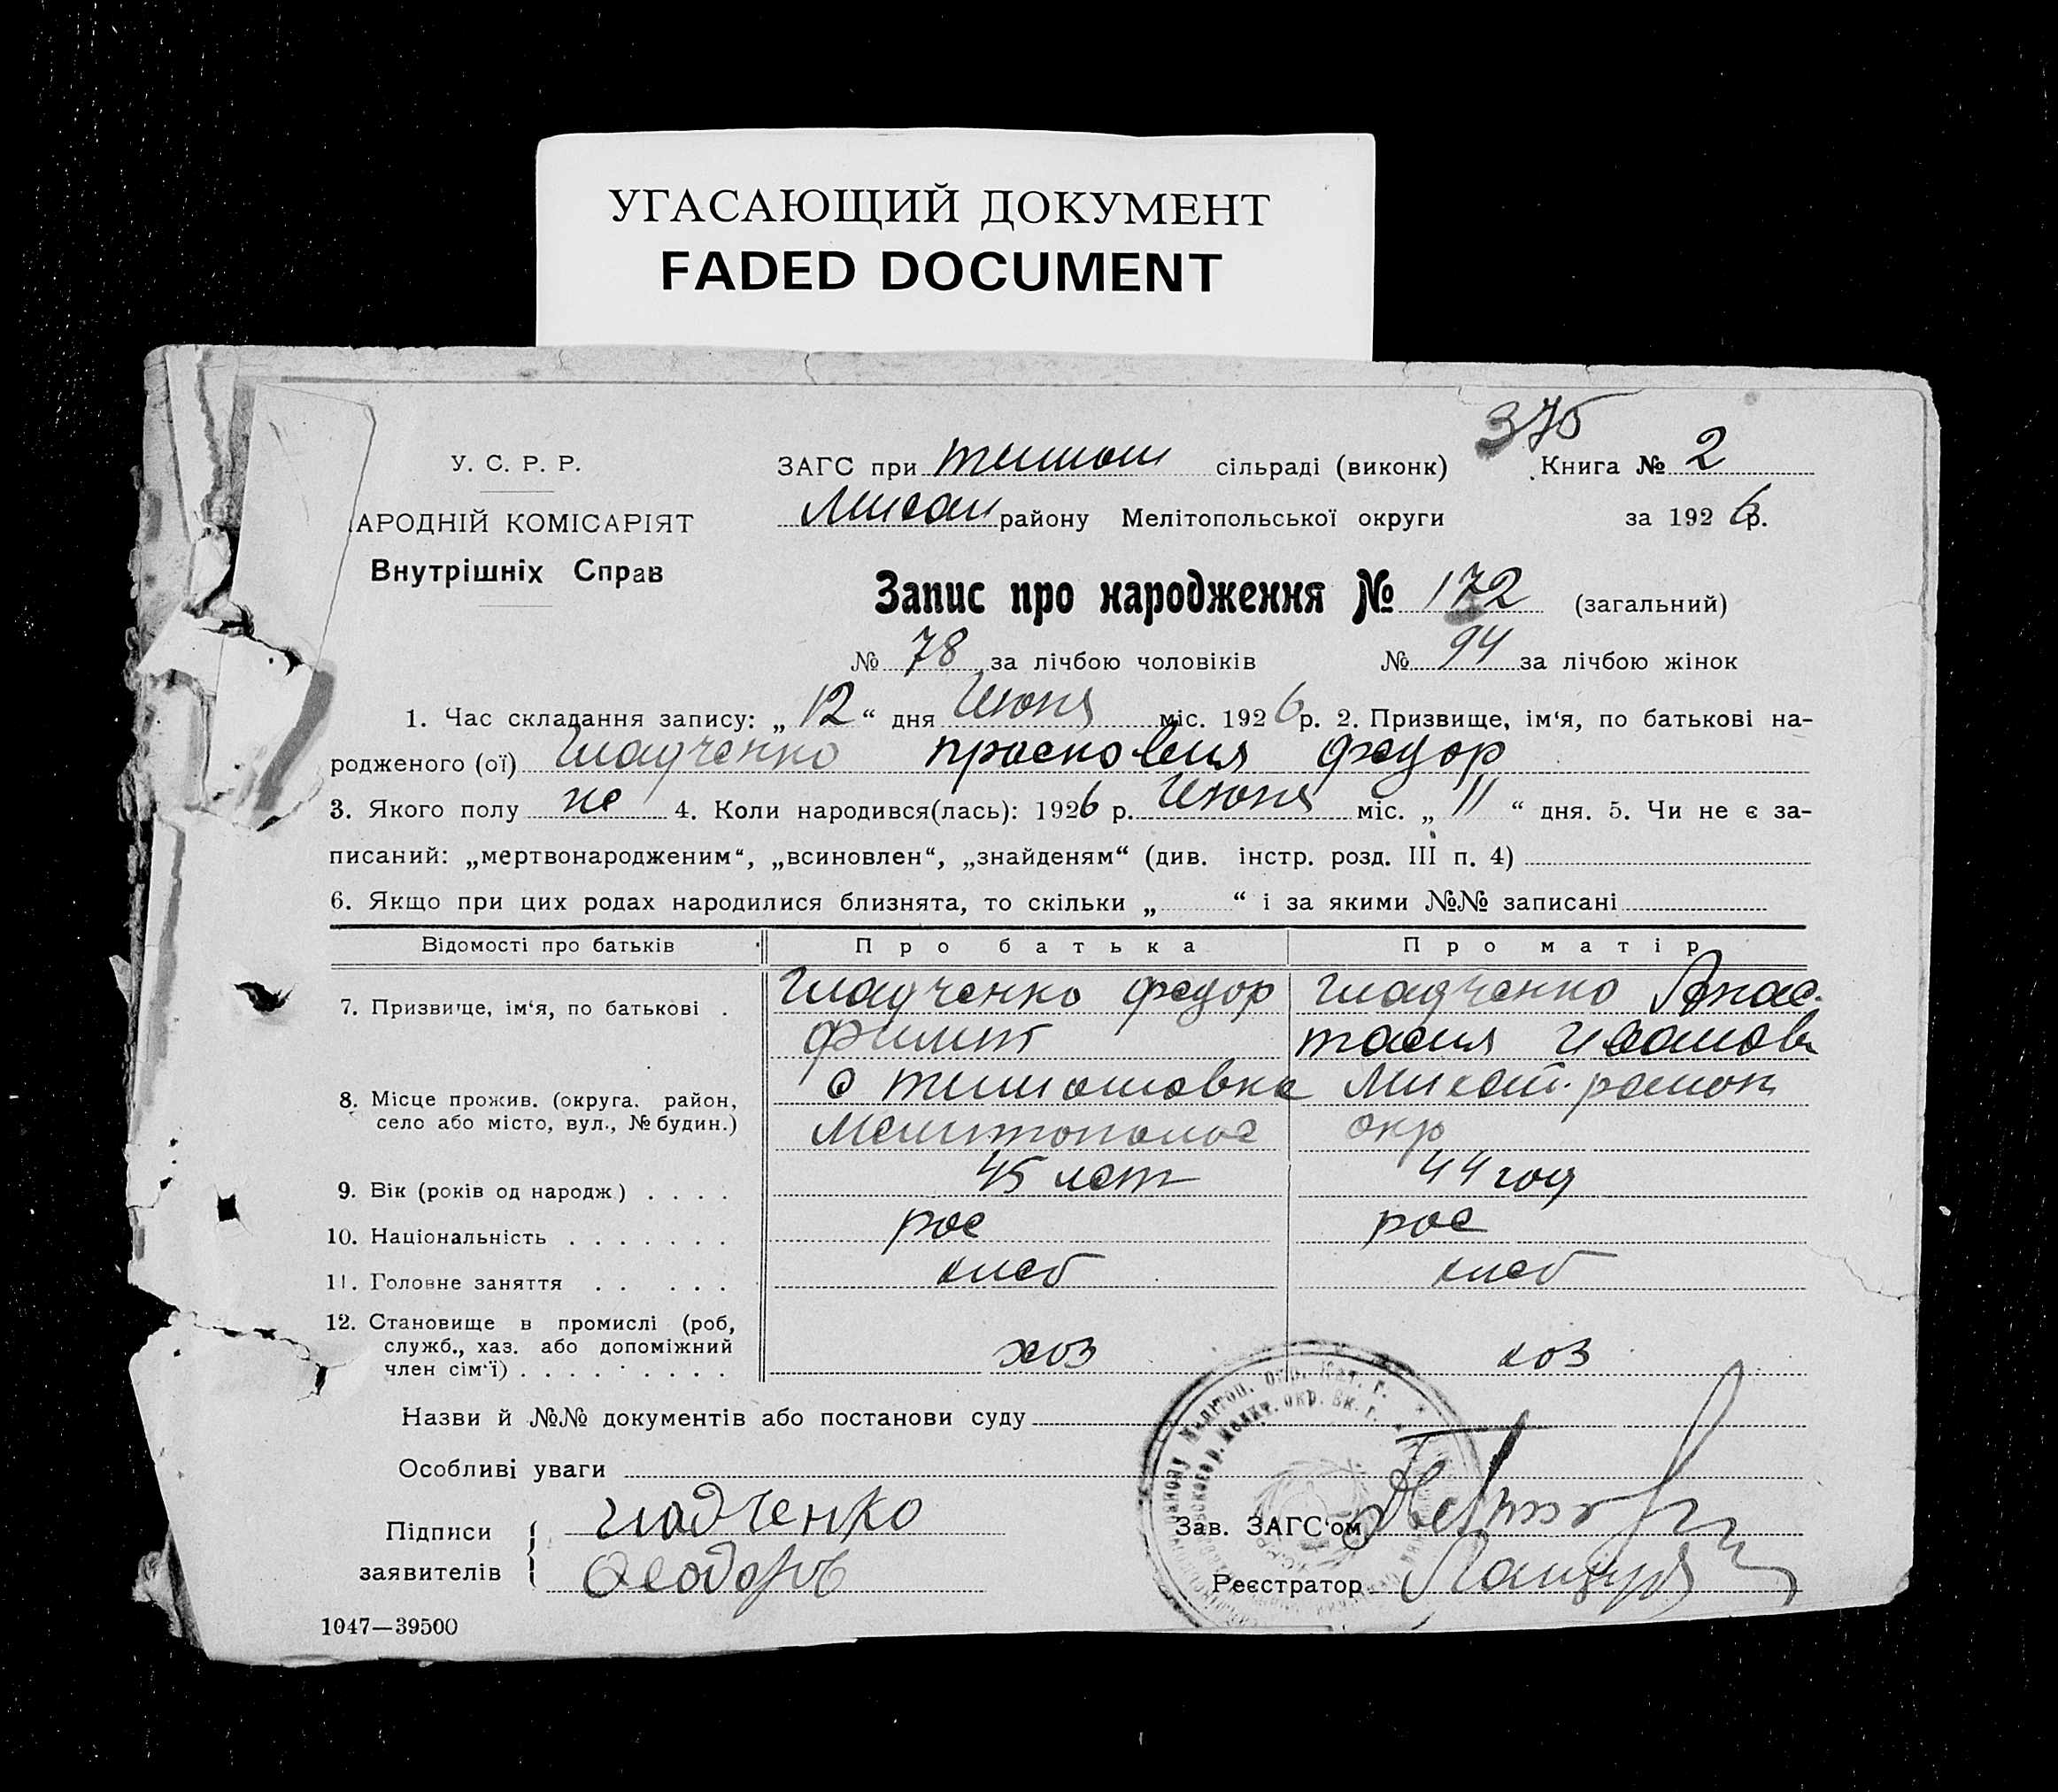 УГАСАЮЩИЙ ДОКУМЕНТ
FADED DOCUMENT
375
У. С. Р. Р.
АРОДНІЙ КОМІСАРІЯТ
Внутрішніх Справ
ЗАГС при тимош сільраді (виконк) Книга № 2
Михай району Мелітопольської округи за 1926 р.
Запис про народження № 172 (загальний)
№ 78 за лічбою чоловіків № 94 за лічбою жінок
1. Час складання запису: „12“ дня Июня міс. 1926 р. 2. Призвище, ім'я, по батькові на-
родженого (ої) Гладченко просковия федор
3. Якого полу же 4. Коли народився(лась): 1926 р. Июня міс. „11“ дня. 5. Чи не є за-
писаний: „мертвонародженим“, „всиновлен“, „знайденям“ (див. інстр. розд. III п. 4)
6. Якщо при цих родах народилися близнята, то скільки „ “ і за якими №№ записані
Відомості про батьків Про батька Про матір
7. Призвище, ім'я, по батькові . Гладченко федор Гладченко Анас-
филип тасия Иванов
8. Місце прожив. (округа. район, с тимошовка Михай. район
село або місто, вул., № будин.) Мелитополь окр
9. Вік (років од народж.) . . . . 45 лет 44 год
10. Національність . . . . . . . рос рос
11. Головне заняття . . . . . хлеб хлеб
12. Становище в промислі (роб,
служб., хаз. або допоміжний
член сім'ї) . . . . . . . . . хоз хоз
Назви й №№ документів або постанови суду
Особливі уваги
Підписи Гладченко Зав. ЗАГС'ом
заявителів Феодоръ Реєстратор
1047—39500